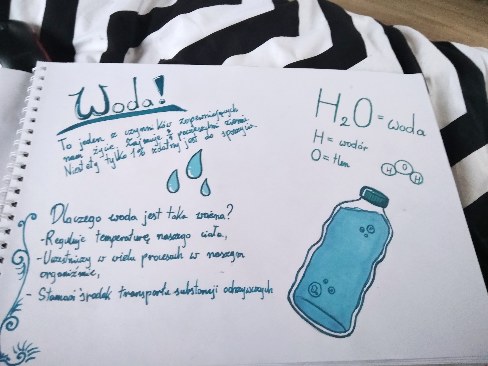 Woda!
To jeden z czynników zapewniających
nam życie. Zajmuje powierzchni ziemi.
Niestety tylko 1% zdatny jest do spożycia.
H₂O = woda
H = wodór
O = tlen
H O H
Dlaczego woda jest taka ważna?
- Reguluje temperaturę naszego ciała,
- Uczestniczy w wielu procesach w naszym
organizmie,
- Stanowi środek transportu substancji odżywczych